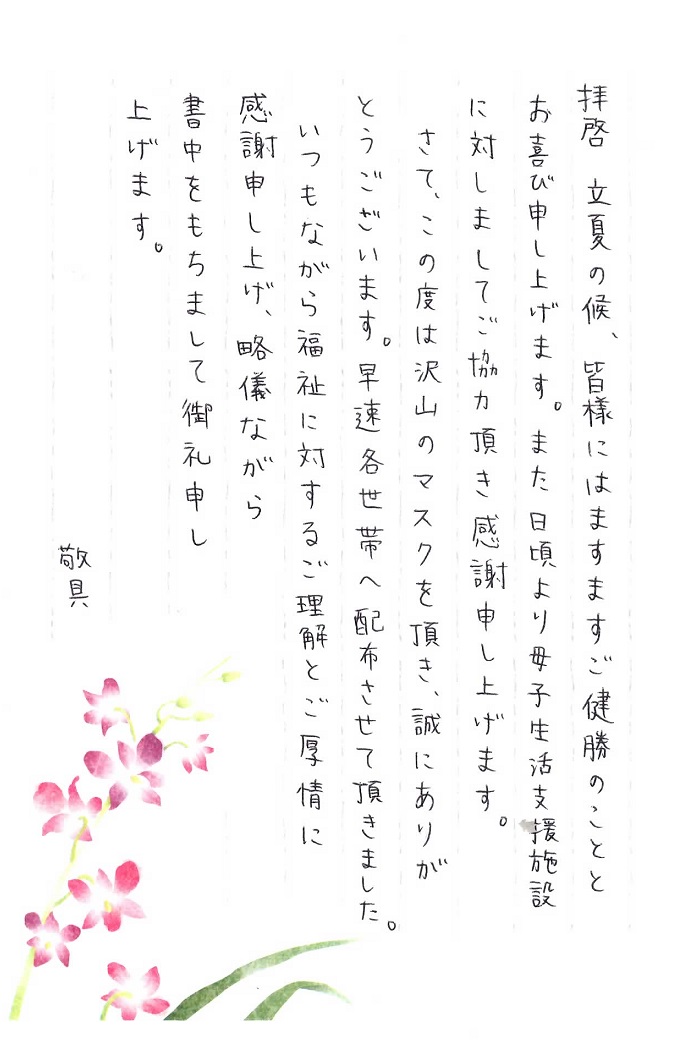 拝啓　立夏の候、皆様にはますますご健勝のことと
お喜び申し上げます。また日頃より母子生活支援施設
に対しましてご協力頂き感謝申し上げます。
さて、この度は沢山のマスクを頂き、誠にありが
とうございます。早速各世帯へ配布させて頂きました。
いつもながら福祉に対するご理解とご厚情に
感謝申し上げ、略儀ながら
書中をもちまして御礼申し
上げます。
敬具